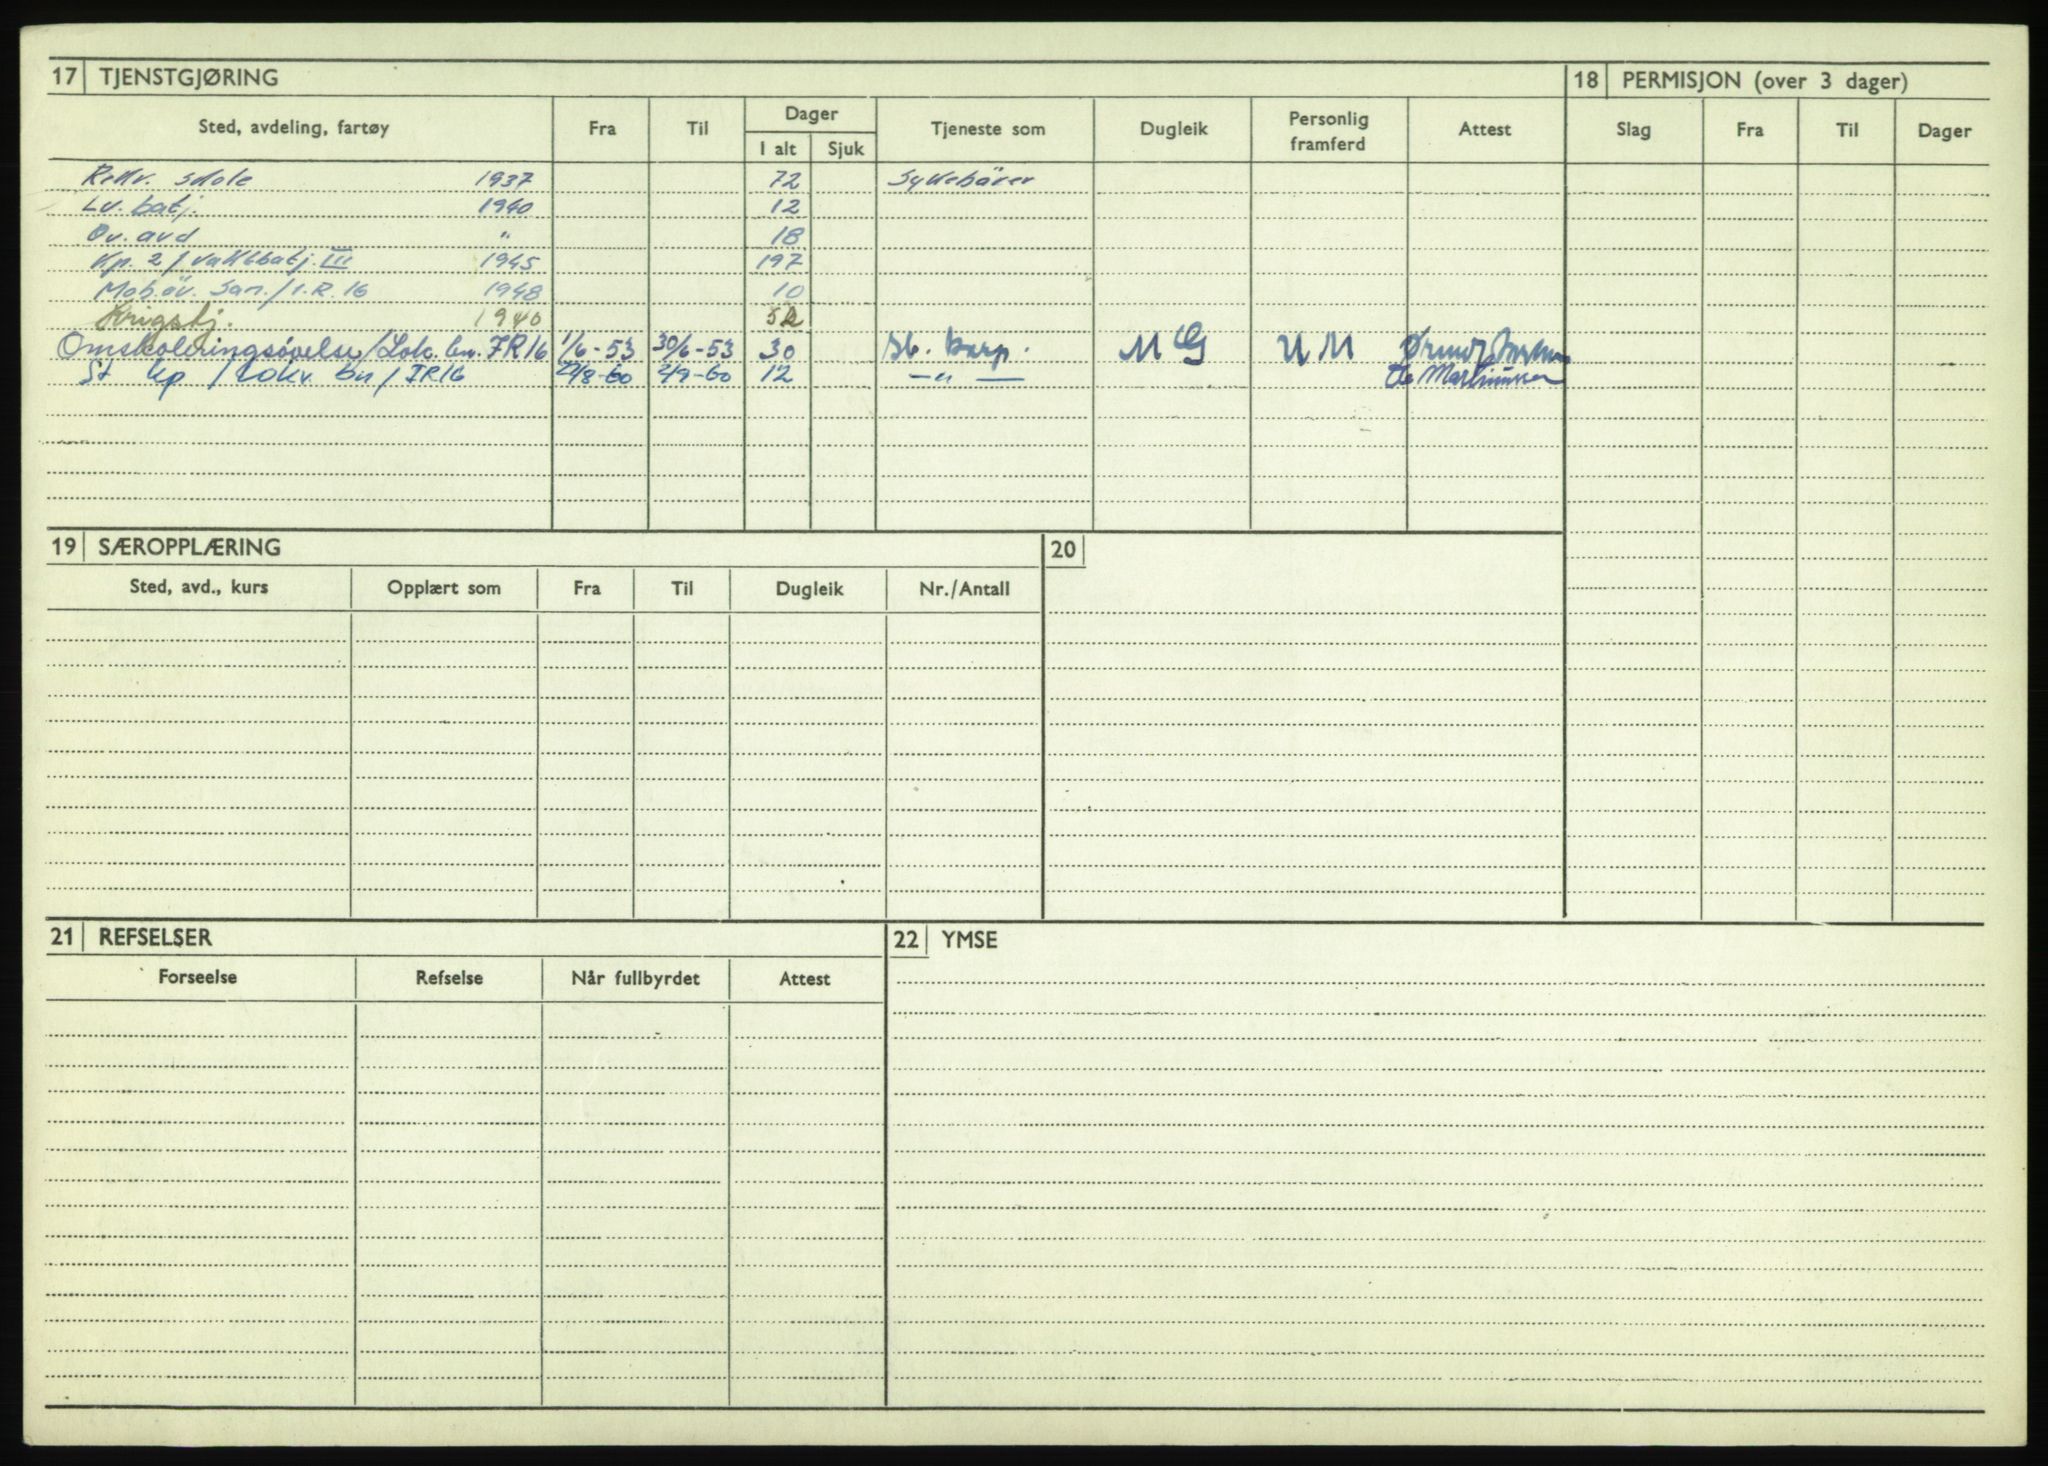 17 TJENSTGJØRING 18 PERMISJON (over 3 dager)
Sted, avdeling, fartøy Fra Til Dager Tjeneste som Dugleik Personlig framferd Attest Slag Fra Til Dager
I alt Sjuk
Rekr. skole 1937 72 Sykebärer
Lv. batj. 1940 12
Öv. avd " 18
Kp. 2 / vaktbatj. III 1945 197
Mob.öv. San./I.R.16 1948 10
Krigstj. 1940 52
Omskoleringsøvelse/Lok. bn. IR16 1/6-53 30/6-53 30 korp. MG UM
St kp / Lokv bn / IR16 22/8-60 2/9-60 12 —"— Martinussen
19 SÆROPPLÆRING 20
Sted, avd., kurs Opplært som Fra Til Dugleik Nr./Antall
21 REFSELSER 22 YMSE
Forseelse Refselse Når fullbyrdet Attest